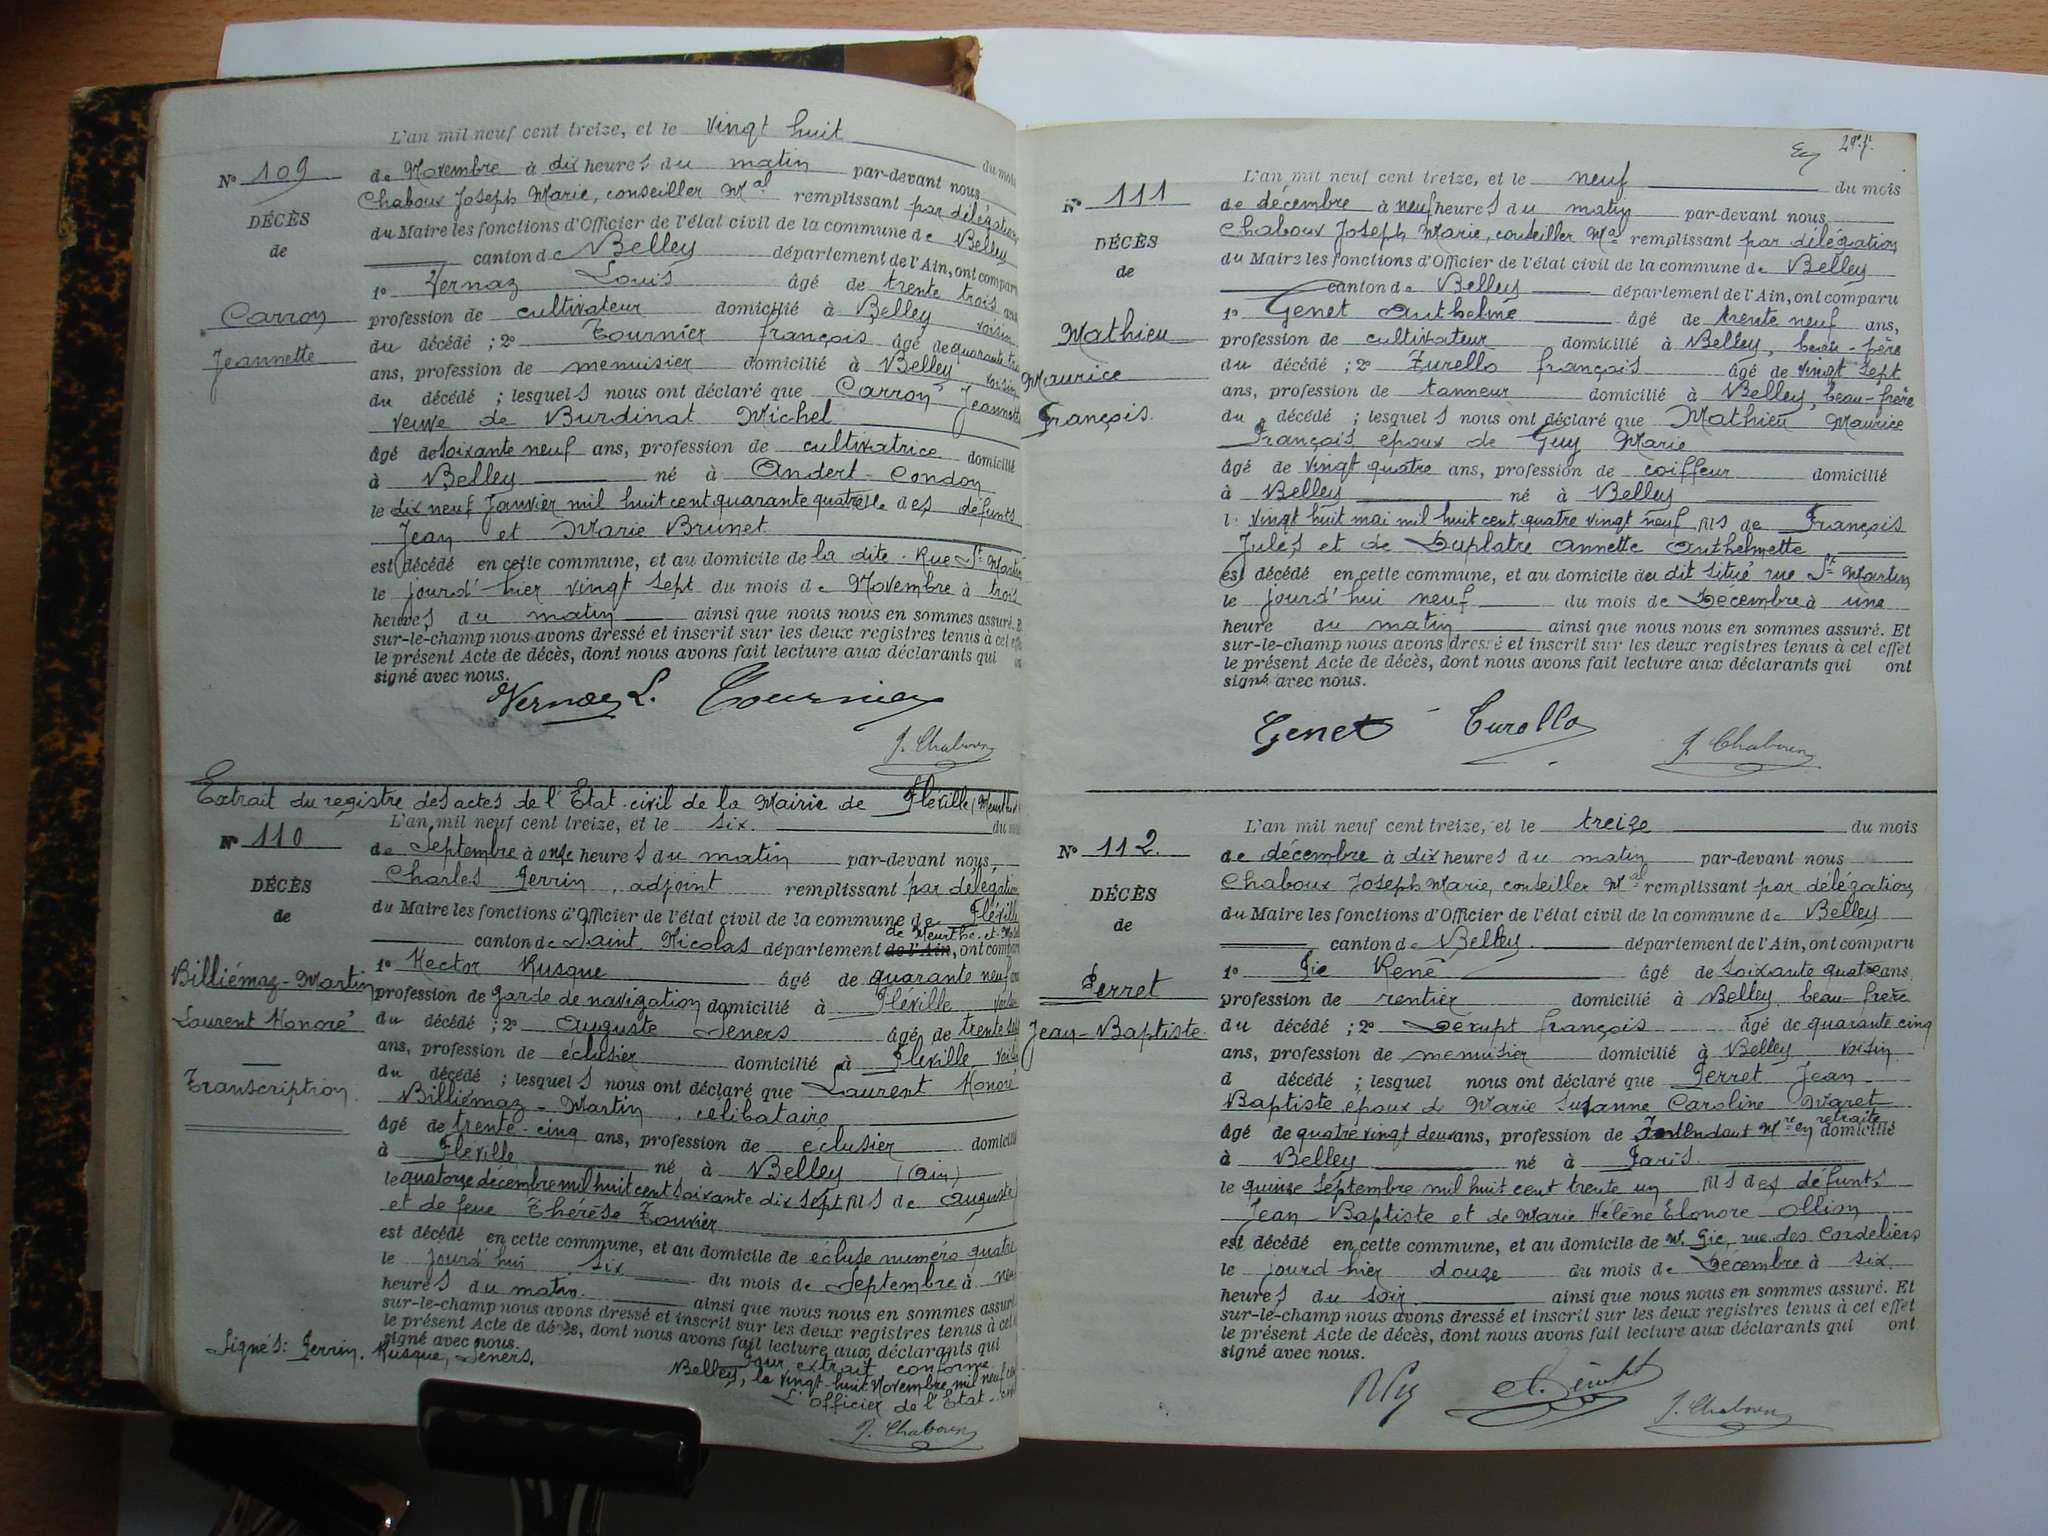 L'an mil neuf cent treize, et le vingt huit du mois
N° 109
DÉCÈS
de
Carron
Jeannette
de Novembre à dix heures du matin par-devant nous
Chaboux Joseph Marie, conseiller Mal remplissant par délégation
du Maire les fonctions d'Officier de l'état civil de la commune de Belley
canton de Belley département de l'Ain, ont comparu
1° Vernaz Louis âgé de trente trois ans
profession de cultivateur domicilié à Belley voisin
du décédé ; 2° Tournier françois âgé de quarante
ans, profession de menuisier domicilié à Belley voisin
du décédé ; lesquels nous ont déclaré que Carron Jeannette
veuve de Burdinat Michel
âgé de soixante neuf ans, profession de cultivatrice domicilié
à Belley né à Andert-Condon
le dix neuf Janvier mil huit cent quarante quatre des défunts
Jean et Marie Brunet
est décédé en cette commune, et au domicile de la dite. Rue St Martin
le jourd'hier vingt sept du mois de Novembre à trois
heures du matin ainsi que nous nous en sommes assuré. E
sur-le-champ nous avons dressé et inscrit sur les deux registres tenus à cet eff
le présent Acte de décès, dont nous avons fait lecture aux déclarants qui
signé avec nous.
Vernaz L. Tournier
J. Chaboux
Extrait du registre des actes de l'Etat-civil de la Mairie de Fléville (Meurthe
L'an mil neuf cent treize, et le six. du mois
N° 110
DÉCÈS
de
Billiémaz-Martin
Laurent Honoré
Transcription
de Septembre à onze heures du matin par-devant nous,
Charles Perrin, adjoint remplissant par délégation
du Maire les fonctions d'Officier de l'état civil de la commune de Fléville
de Meurthe-et-Mos
canton de Saint Nicolas département de l'Ain, ont compar
1° Hector Rusque âgé de quarante neuf ans
profession de garde de navigation domicilié à Fléville voisin
du décédé ; 2° Auguste Seners âgé de trente
ans, profession de éclusier domicilié à Fléville voisin
du décédé ; lesquels nous ont déclaré que Laurent Honoré
Billiémaz-Martin, célibataire
âgé de trente-cinq ans, profession de éclusier domicilié
à Fléville né à Belley (Ain)
le quatorze décembre mil huit cent soixante dix sept fils de Auguste
et de feue Thérèse Touvier
est décédé en cette commune, et au domicile de écluse numéro quatre
le jourd'hui six du mois de Septembre à neu
heures du matin. ainsi que nous nous en sommes assuré.
sur-le-champ nous avons dressé et inscrit sur les deux registres tenus à cet
le présent Acte de décès, dont nous avons fait lecture aux déclarants qui
signé avec nous.
Signés: Perrin, Rusque, Seners.
Pour extrait conforme
Belley, le vingt huit Novembre mil neuf cent
L'officier de l'Etat-civil
J. Chaboux
L'an mil neuf cent treize, et le neuf du mois
N° 111
DÉCÈS
de
Mathieu
Maurice
François.
de décembre à neuf heures du matin par-devant nous
Chaboux Joseph Marie, conseiller Mal remplissant par délégation
du Maire les fonctions d'Officier de l'état civil de la commune de Belley
canton de Belley département de l'Ain, ont comparu
1° Genet Anthelme âgé de trente neuf ans,
profession de cultivateur domicilié à Belley, beau-père
du décédé ; 2° Turello françois âgé de vingt sept
ans, profession de tanneur domicilié à Belley, beau-frère
du décédé ; lesquels nous ont déclaré que Mathieu Maurice
François, époux de Guy Marie
âgé de vingt quatre ans, profession de coiffeur domicilié
à Belley né à Belley
le vingt huit mai mil huit cent quatre vingt neuf fils de François
Jules et de Duplatre Annette Anthelmette
est décédé en cette commune, et au domicile du dit situé rue St Martin
le jourd'hui neuf du mois de Décembre à une
heure du matin ainsi que nous nous en sommes assuré. Et
sur-le-champ nous avons dressé et inscrit sur les deux registres tenus à cet effet
le présent Acte de décès, dont nous avons fait lecture aux déclarants qui ont
signé avec nous.
Genet Turello
J. Chaboux
L'an mil neuf cent treize, et le treize du mois
N° 112.
DÉCÈS
de
Perret
Jean-Baptiste
de décembre à dix heures du matin par-devant nous
Chaboux Joseph Marie, conseiller Mal remplissant par délégation
du Maire les fonctions d'Officier de l'état civil de la commune de Belley
canton de Belley département de l'Ain, ont comparu
1° Pic René âgé de soixante quatre ans
profession de rentier domicilié à Belley, beau-frère
du décédé ; 2° Derupt françois âgé de quarante cinq
ans, profession de menuisier domicilié à Belley, voisin
d décédé ; lesquel nous ont déclaré que Perret Jean
Baptiste, époux de Marie Suzanne Caroline Varet
âgé de quatre vingt deux ans, profession de Intendant Mre en retraite domicilié
à Belley né à Paris
le quinze Septembre mil huit cent trente un fils des défunts
Jean-Baptiste et de Marie Hélène Elonore Ollion
est décédé en cette commune, et au domicile de M. Pic, rue des Cordeliers
le jourd'hier douze du mois de Décembre à six
heures du soir ainsi que nous nous en sommes assuré. Et
sur-le-champ nous avons dressé et inscrit sur les deux registres tenus à cet effet
le présent Acte de décès, dont nous avons fait lecture aux déclarants qui ont
signé avec nous.
J. Chaboux